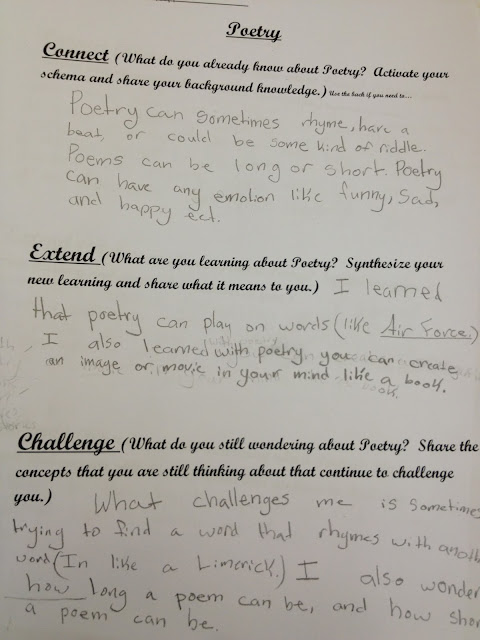 Poetry
Connect (What do you already know about Poetry? Activate your
schema and share your background knowledge.) Use the back if you need to...
Poetry can sometimes rhyme, have a
beat, or could be some kind of riddle.
Poems can be long or short. Poetry
can have any emotion like funny, Sad,
and happy ect.
Extend (What are you learning about Poetry? Synthesize your
new learning and share what it means to you.) I learned
that poetry can play on words (like Air Force.)
I also learned with poetry you can create
an image or movie in your mind like a book.
book.
Challenge (What do you still wondering about Poetry? Share the
concepts that you are still thinking about that continue to challenge
you.) What challenges me is sometimes
trying to find a word that rhymes with anoth
word (In like a Limerick.) I also wonder
how long a poem can be, and how shor
a poem can be.